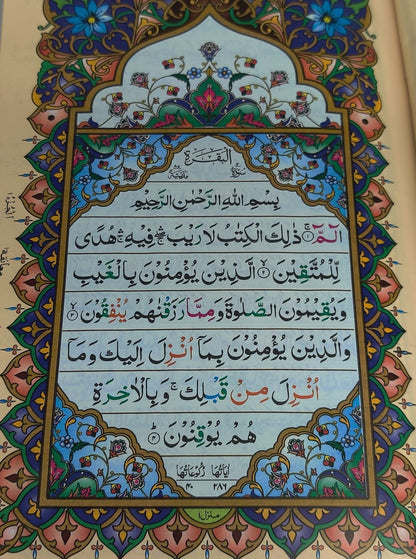 سورة البقرة مدنية
بِسْمِ اللهِ الرَّحْمٰنِ الرَّحِيْمِ
الٓمّٓ ۚ﴿۱﴾ ذٰلِكَ الْكِتٰبُ لَا رَيْبَ ۖۛ فِيْهِ ۚۛ هُدًى
لِّلْمُتَّقِيْنَ ﴿۲﴾ الَّذِيْنَ يُؤْمِنُوْنَ بِالْغَيْبِ
وَيُقِيْمُوْنَ الصَّلٰوةَ وَمِمَّا رَزَقْنٰهُمْ يُنْفِقُوْنَ ﴿۳﴾
وَالَّذِيْنَ يُؤْمِنُوْنَ بِمَاۤ اُنْزِلَ اِلَيْكَ وَمَاۤ
اُنْزِلَ مِنْ قَبْلِكَ ۚ وَبِالْاٰخِرَةِ
هُمْ يُوْقِنُوْنَ ﴿۴﴾
اٰيَاتُهَا رُكُوْعَاتُهَا
۲۸۶ ۴۰
منزل ۱